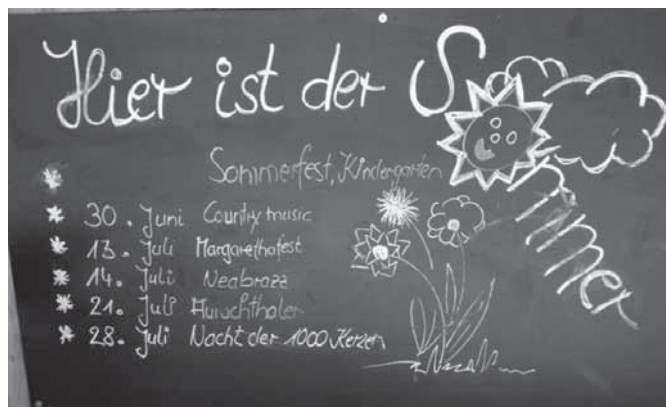 Hier ist der Sommer
Sommerfest, Kindergarten
30. Juni Country music
13. Juli Margarethafest
14. Juli
21. Juli
28. Juli Nacht der 1000 Kerzen